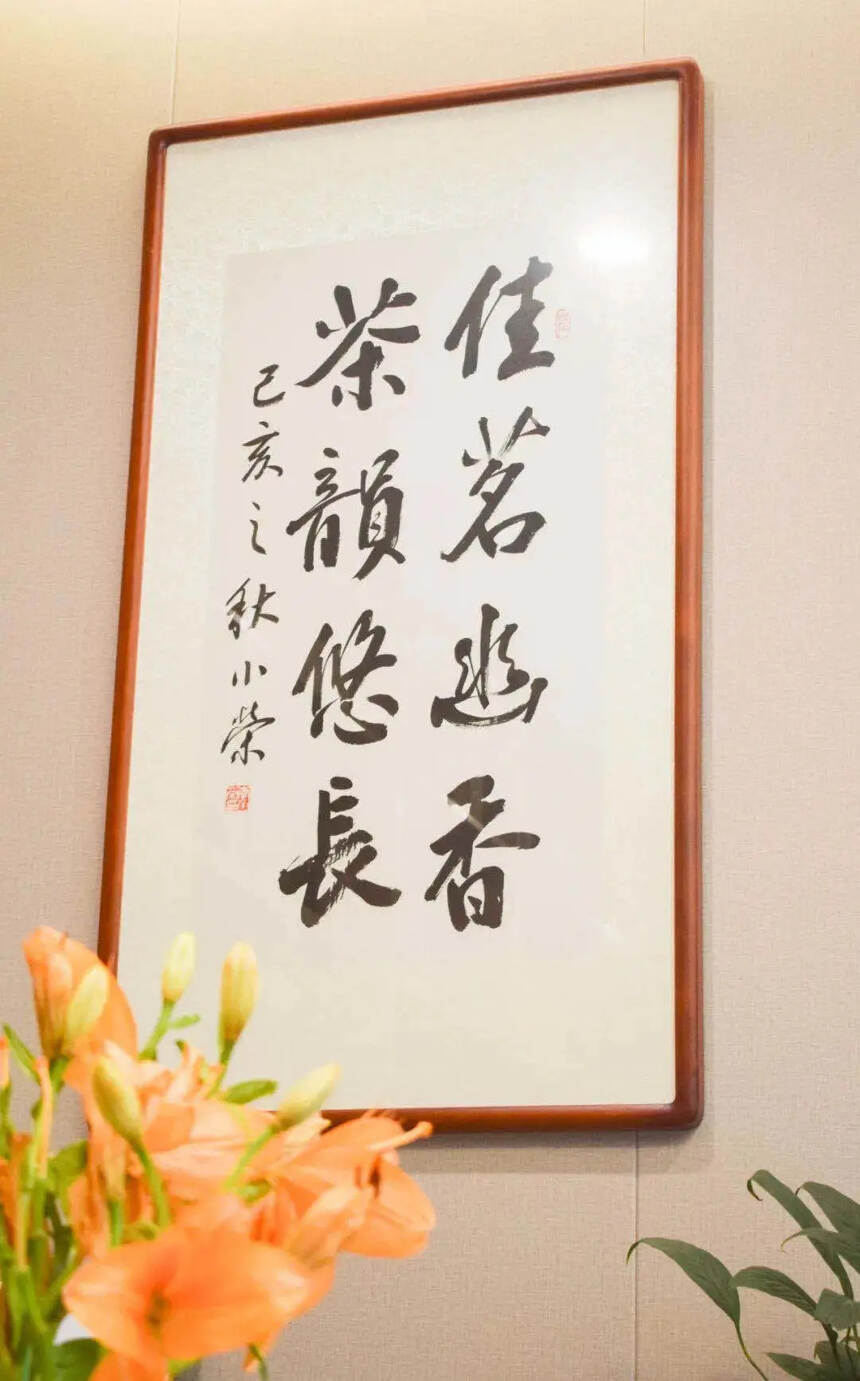 佳茗幽香
茶韻悠長
己亥之秋小榮